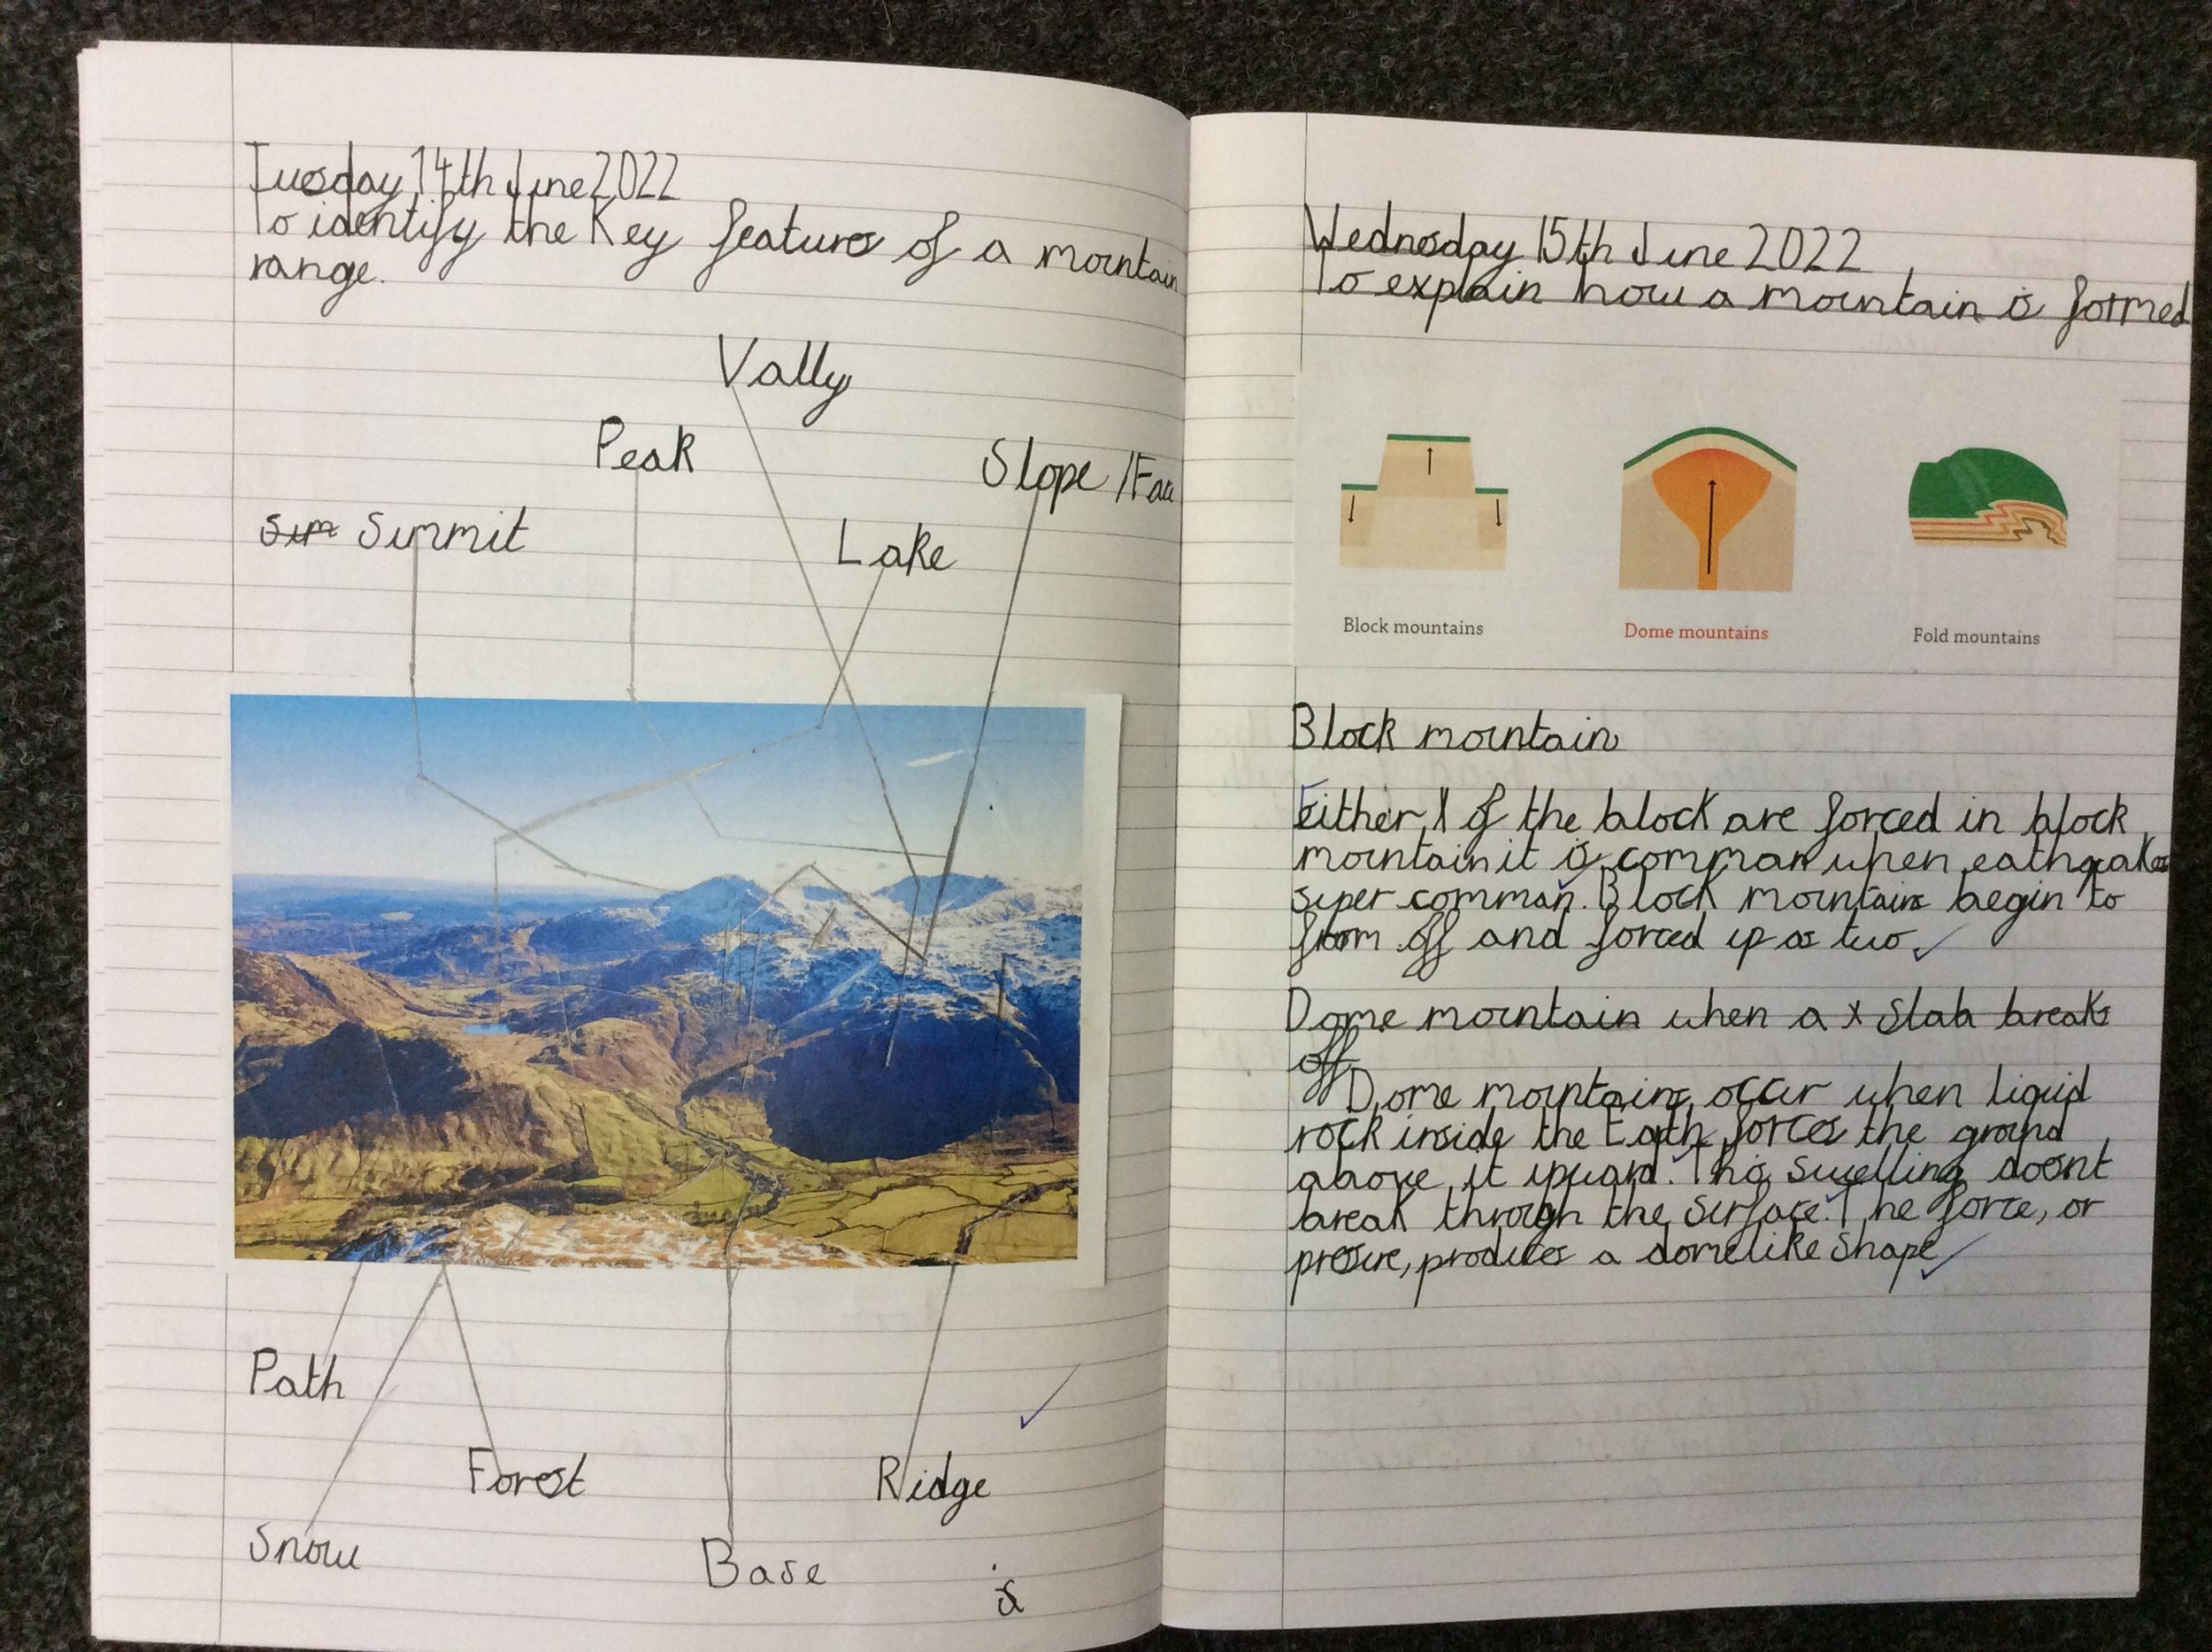 Tuesday 14th June 2022
To identify the Key features of a mountain
range.
Vally
Peak
Slope / Face
Sum Summit
Lake
Path
Forest
Ridge
Snow
Base
is
Wednesday 15th June 2022
To explain how a mountain is formed
Block mountains
Dome mountains
Fold mountains
Block mountain
Either of the block are forced in block
mountain it is comman when eathquakes
super comman. Block mountains begin to
off and forced up as two
Dome mountain when a x slab breaks
off
Dome mountains occur when liquid
rock inside the Eath forces the ground
above it upward. This swelling doesnt
break through the surface. The force, or
presure, produces a domelike shape